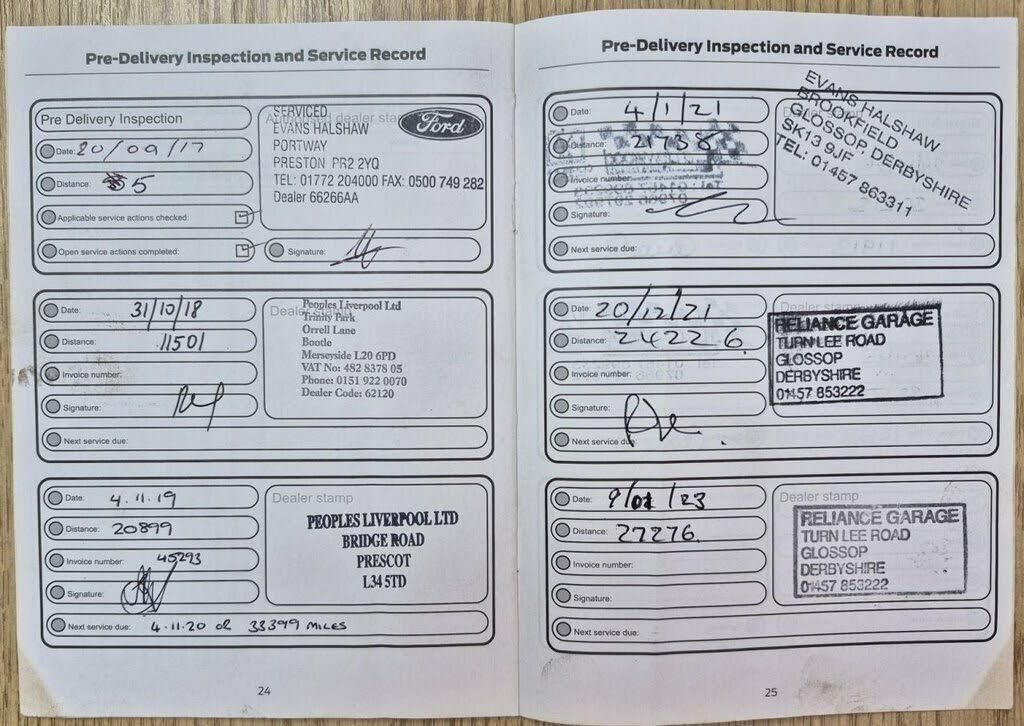 Pre-Delivery Inspection and Service Record
Pre Delivery Inspection
Date: 20/09/17
Distance: 5
Applicable service actions checked:
Open service actions completed:
Signature:
SERVICED
EVANS HALSHAW
PORTWAY
PRESTON PR2 2YQ
TEL: 01772 204000 FAX: 0500 749 282
Dealer 66266AA
Ford
Date: 31/10/18
Distance: 11501
Invoice number:
Signature:
Next service due:
Dealer stamp
Peoples Liverpool Ltd
Trinity Park
Orrell Lane
Bootle
Merseyside L20 6PD
VAT No: 482 8378 05
Phone: 0151 922 0070
Dealer Code: 62120
Date: 4.11.19
Distance: 20899
Invoice number: 45293
Signature:
Next service due: 4.11.20 or 33399 MILES
Dealer stamp
PEOPLES LIVERPOOL LTD
BRIDGE ROAD
PRESCOT
L34 5TD
24
Pre-Delivery Inspection and Service Record
Date: 4/1/21
Distance: 21738
Invoice number:
Signature:
Next service due:
EVANS HALSHAW
BROOKFIELD
GLOSSOP, DERBYSHIRE
SK13 9JF
TEL: 01457 863311
Date: 20/12/21
Distance: 24226
Invoice number:
Signature:
Next service due:
Dealer stamp
RELIANCE GARAGE
TURN LEE ROAD
GLOSSOP
DERBYSHIRE
01457 853222
Date: 9/01/23
Distance: 27276
Invoice number:
Signature:
Next service due:
Dealer stamp
RELIANCE GARAGE
TURN LEE ROAD
GLOSSOP
DERBYSHIRE
01457 853222
25